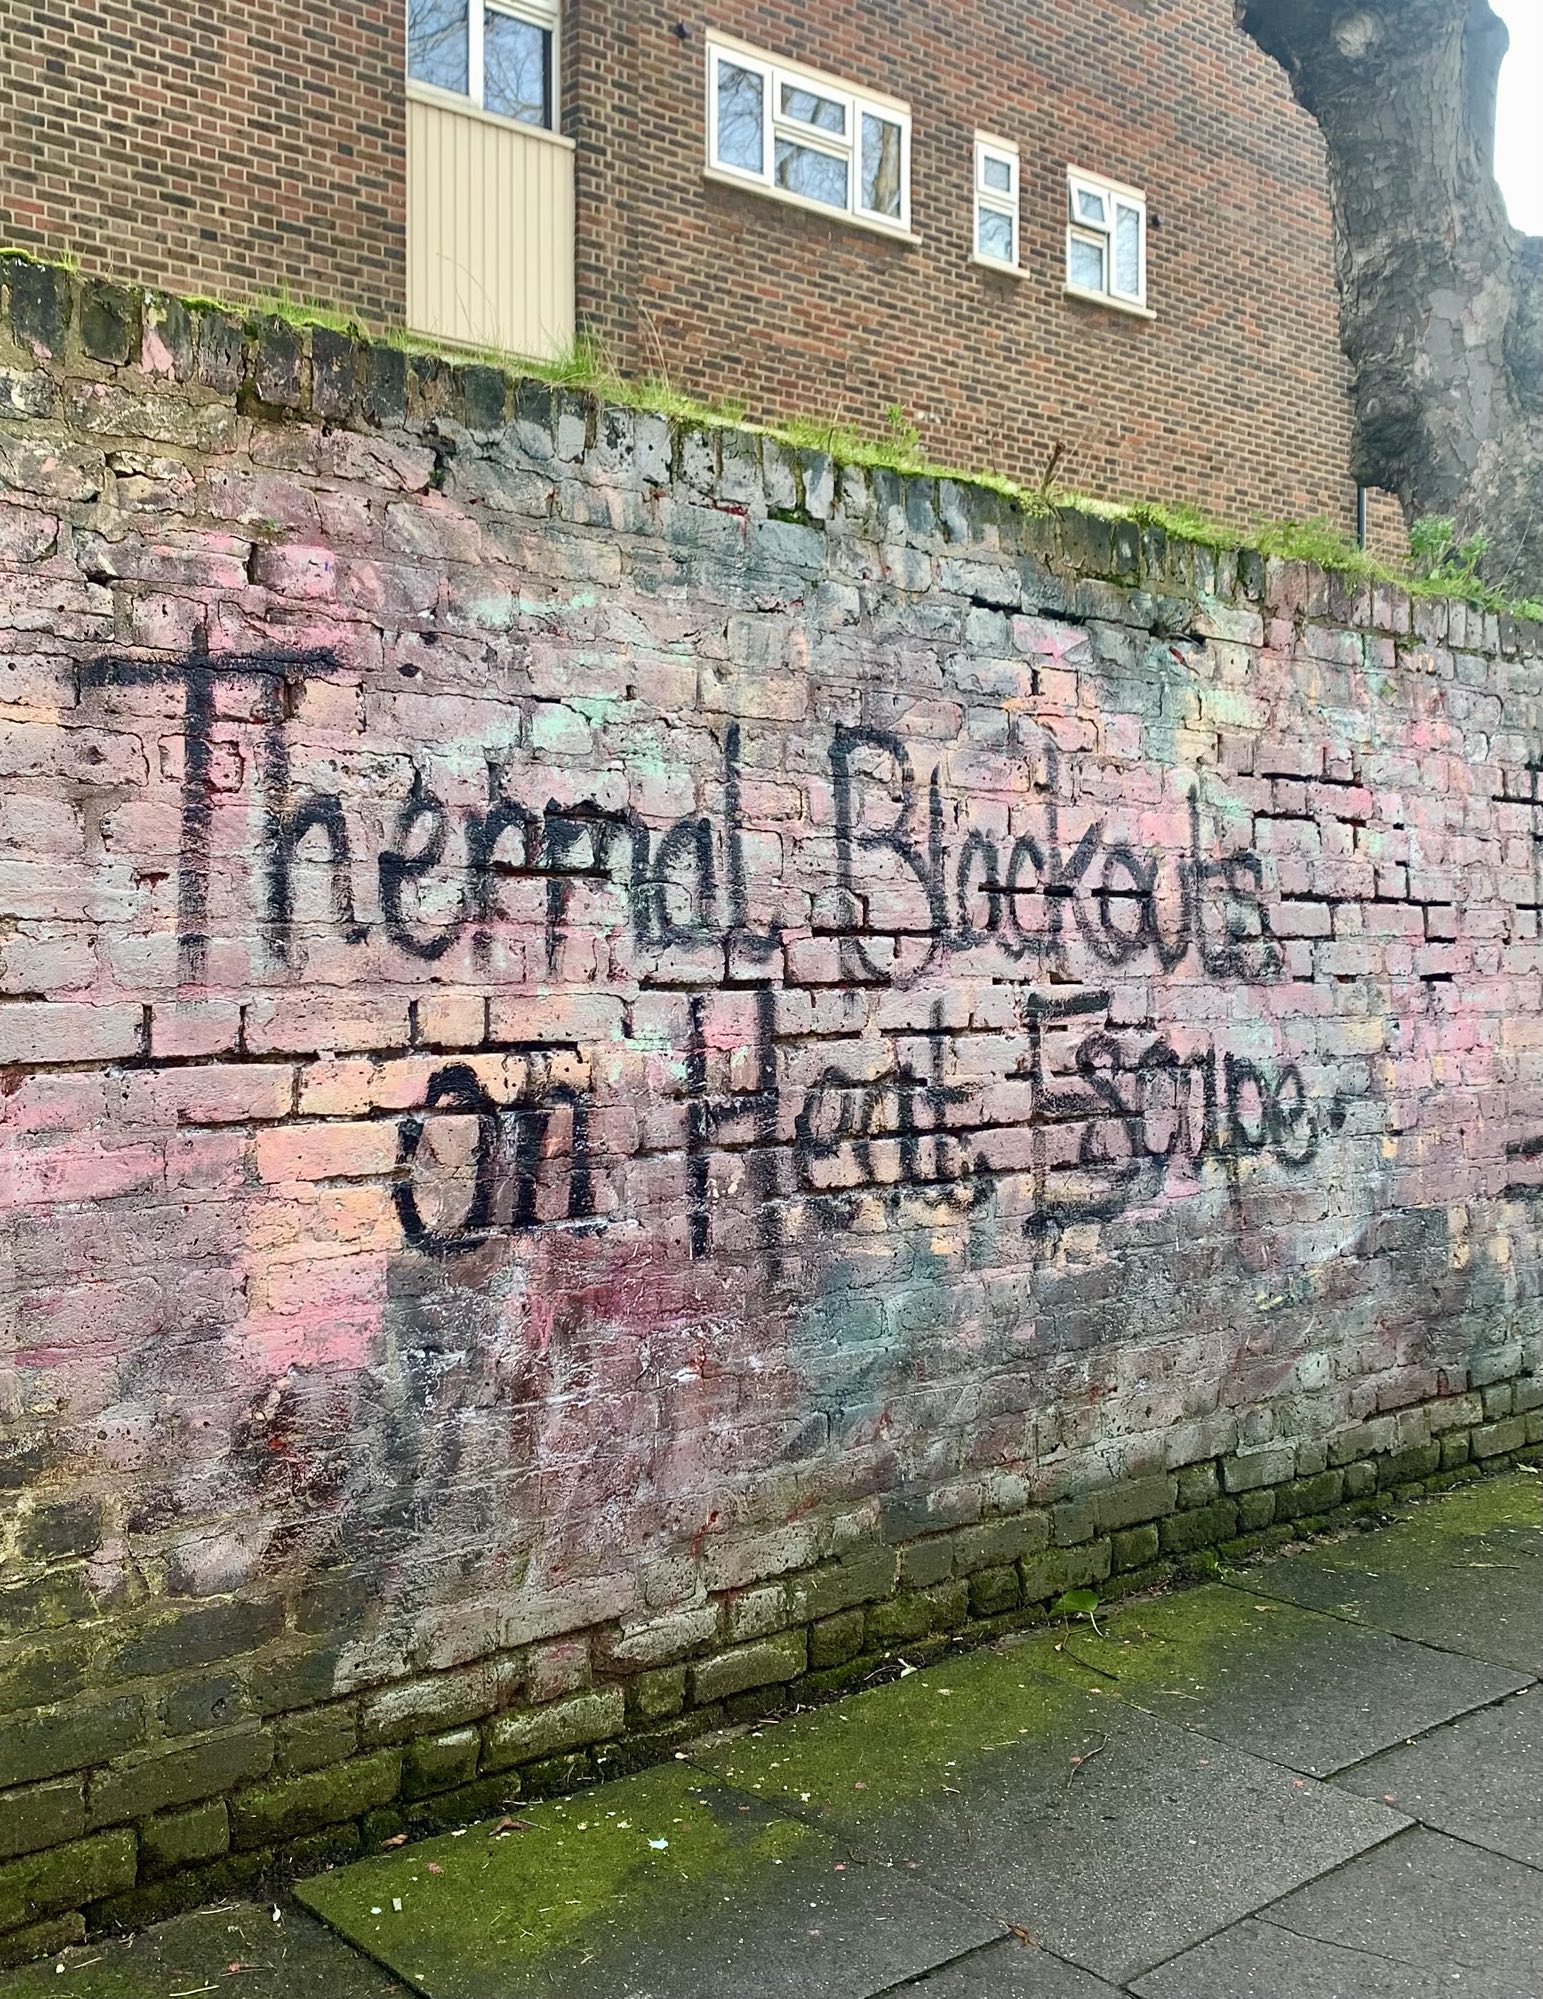 Thermal Blackouts
on Heat Escape.